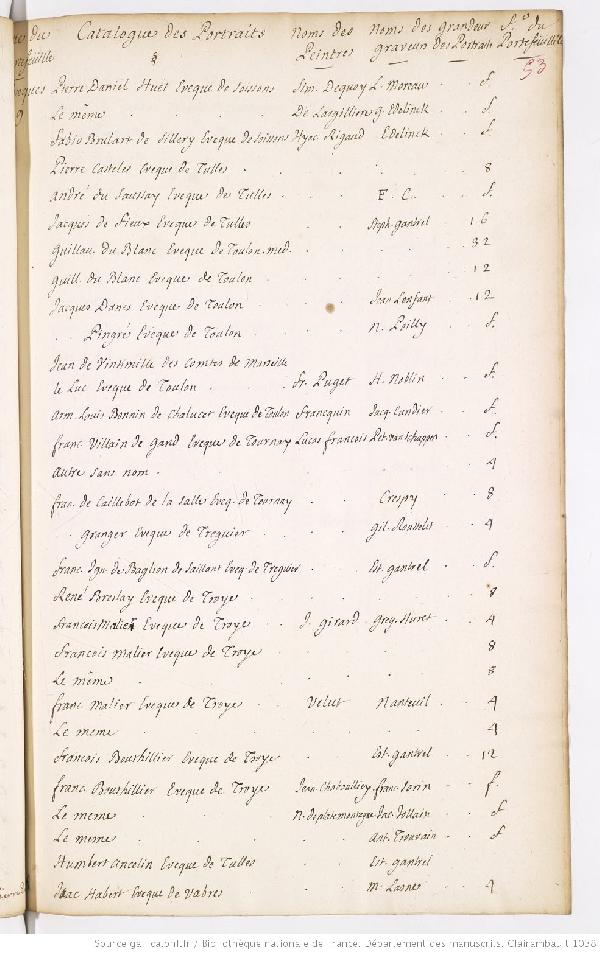 Catalogue des Portraits Noms des Peintres noms des graveurs grandeur des Portraits f.º du Portefeuille
53
Pierre Daniel Huet Eveque de Soissons Sim. Dequoy L. Moreau f.
Le même De Largilliere g. Edelinck f.
Fabio Brulart de Sillery Eveque de Soissons Hyac Rigaud Edelinck f.
Pierre Casteles Eveque de Tulles 8
André du Saussay Eveque de Tulles F. C. f.
Jacques de Fieux Eveque de Tulles Steph. gantrel 16
Guillau. du Blanc Eveque de Toulon. med. 32
Guill. du Blanc Eveque de Toulon 12
Jacques Danes Eveque de Toulon Jean Lenfant 12
Pingré Eveque de Toulon N. Poilly f.
Jean de Vintimille des Comtes de Marseille
le Luc Eveque de Toulon Fr. Puget H. Noblin f.
Arm. Louis Bonnin de Chalucet Eveque de Toulon Francquin Jacq. Candier f.
franc. Villain de Gand Eveque de Tournay Lucas francois Pet. van Schuppen f.
Autre sans nom 4
fran. de Caillebot de la Salle Eveq. de Tournay Crespy 8
Granger Eveque de Treguier gil. Rousselet 4
franc. Ign. de Baglion de Saillant Eveq. de Treguier Est. gantrel f.
René Breslay Eveque de Troye 8
Francois Malier Eveque de Troye J. Girard Greg. Huret 4
François Malier Eveque de Troye 8
Le même 8
franc Malier Eveque de Troye Velut Nanteuil 4
Le meme 4
Francois Bouthillier Eveque de Troye Est. gantrel 12
franc. Bouthillier Eveque de Troye Jean franc. f.
Le meme N. Jollain f
Le meme Ant. Trouvain f
Humbert Ancelin Eveque de Tulles Est. gantrel
Isaac Habert Eveque de Vabres M. Lasne 4
Source gallica.bnf.fr / Bibliothèque nationale de France. Département des manuscrits. Clairambault 1038